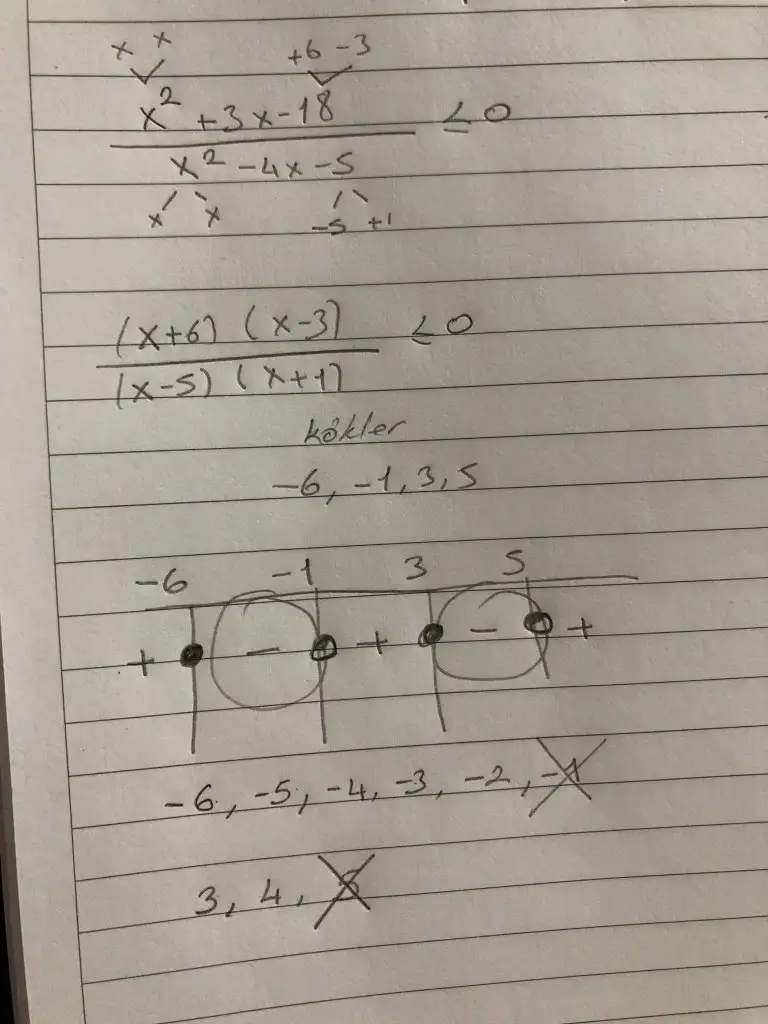 x x +6 -3
x² +3x-18 ≤0
x² -4x -5
x x -5 +1
(x+6) (x-3) ≤0
(x-5) (x+1)
kökler
-6, -1, 3, 5
-6 -1 3 5
+ - + - +
-6, -5, -4, -3, -2, -1
3, 4, 5